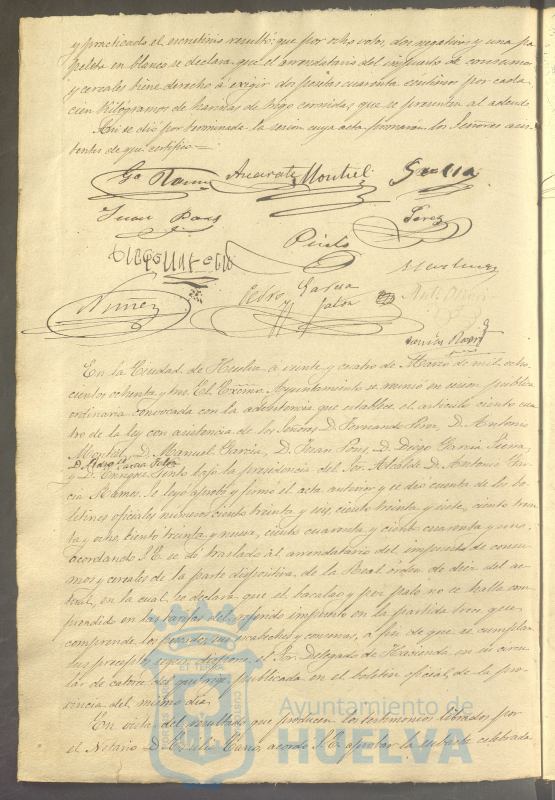 y practicado el escrutinio resultó: que por ocho votos, dos negativos y una pa-
peleta en blanco, se declara que el arrendatario del impuesto de consumos
y cereales tiene derecho á exigir dos pesetas cuarenta céntimos por cada
cien kilógramos de harinas de trigo cernidas, que se presenten al adeudo.
Asi se dió por terminada la sesion cuya acta firmaran los Señores asis-
tentes de que certifico.=
Ga. Ramos Montiel Garcia
Juan Pons Perez
Pinto
Pedro Garcia
Nuñez Jalon
En la Ciudad de Huelva á veinte y cuatro de Marzo de mil ocho-
cientos ochenta y tres. El Excmo. Ayuntamiento se reunió en sesion pública
ordinaria convocada con la advertencia que establece el artículo ciento cua-
tro de la ley con asistencia de los Señores D. Fernando D. Antonio
Montiel, D. Manuel Garcia, D. Juan Pons, D. Diego Garcia
D. Pedro Garcia Jalon
y D. Enrique Pinto bajo la presidencia del Sor. Alcalde D. Antonio Gar-
cia Ramos. Se leyó aprobó y firmó el acta anterior y se dió cuenta de los bo-
letines oficiales números ciento treinta y seis, ciento treinta y siete, ciento trein-
ta y ocho, ciento treinta y nueve, ciento cuarenta y ciento cuarenta y uno,
acordando S.E. se dé traslado al arrendatario del impuesto de consu-
mos y cereales de la parte dispositiva de la Real órden de diez del ac-
tual, en la cual se declara que el bacalao y pez palo no se halla com-
prendido en las tarifas del referido impuesto en la partida trece que
comprende los pescados, sus escabeches y conservas, á fin de que se cumplan
sus preceptos segun dispone el Sor. Delegado de Hacienda en su circu-
lar de catorce del que rige publicada en el boletin oficial de la pro-
vincia del mismo dia.
En vista del resultado que producen los testimonios librados por
el Notario D. Emilio Cano, acordó S.E. aprobar la subasta celebrada
Ayuntamiento de
HUELVA